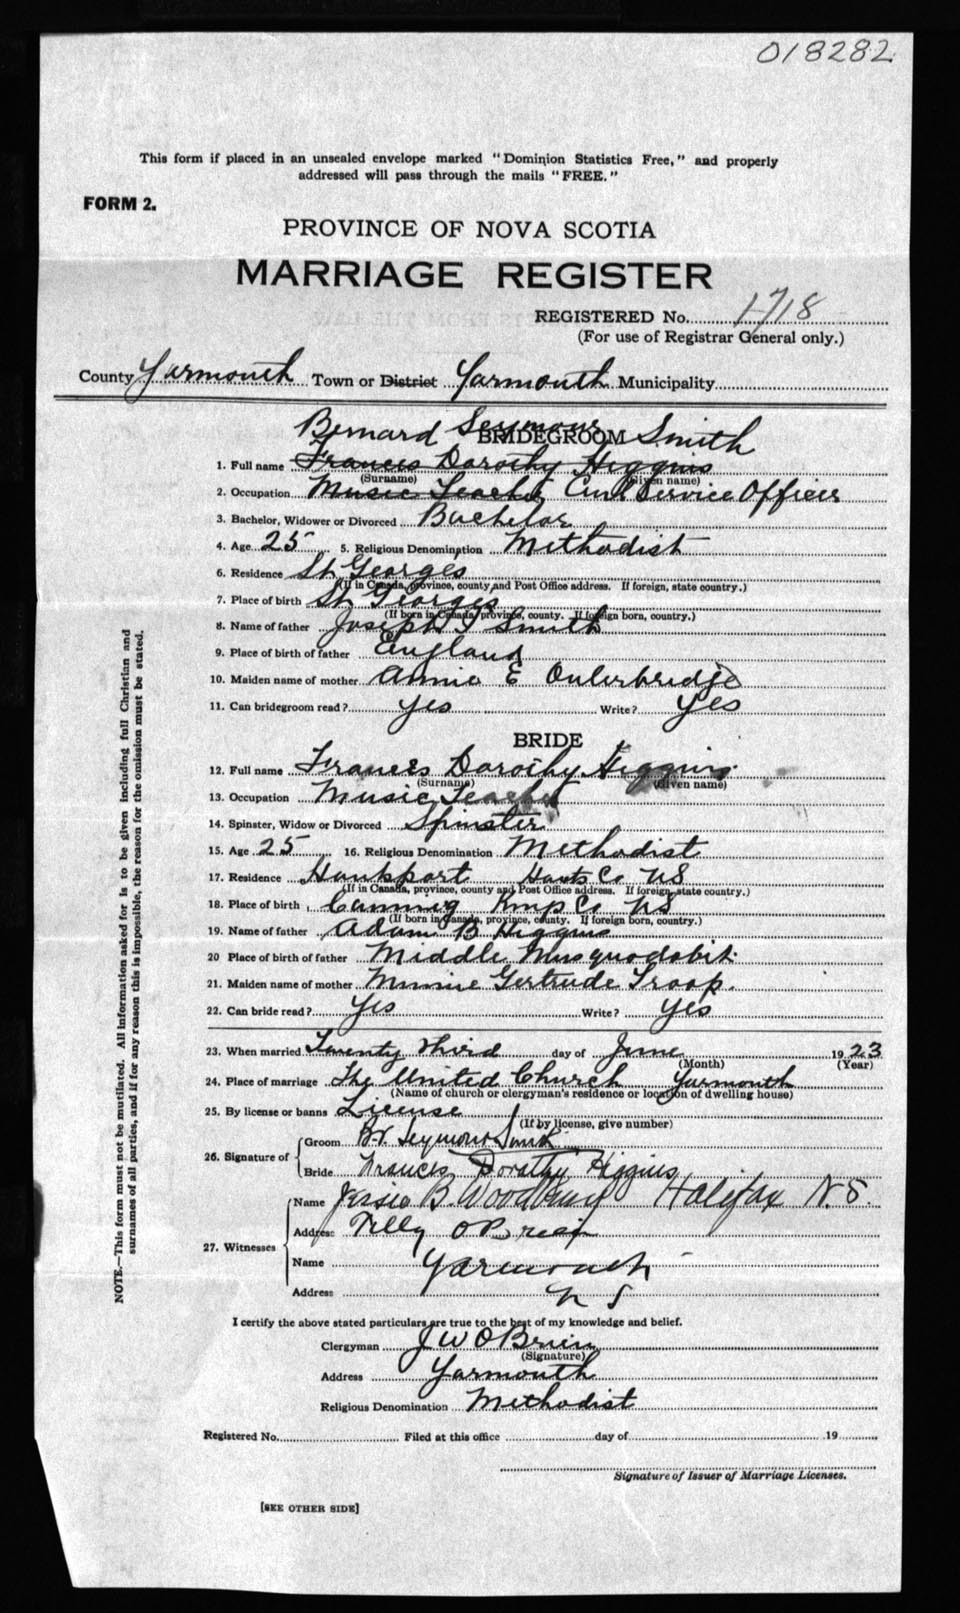 018282
This form if placed in an unsealed envelope marked "Dominion Statistics Free," and properly
addressed will pass through the mails "FREE."
FORM 2.
PROVINCE OF NOVA SCOTIA
MARRIAGE REGISTER
REGISTERED No. 1718
(For use of Registrar General only.)
County Yarmouth Town or District Yarmouth Municipality
Bernard Seymour Smith
BRIDEGROOM
1. Full name Frances Dorothy Higgins
(Surname) (Given name)
2. Occupation Music Teacher Civil Service Officer
3. Bachelor, Widower or Divorced Bachelor
4. Age 25 5. Religious Denomination Methodist
6. Residence St Georges
(If in Canada, province, county and Post Office address. If foreign, state country.)
7. Place of birth St Georges
(If born in Canada, province, county. If foreign born, country.)
8. Name of father Joseph T Smith
9. Place of birth of father England
10. Maiden name of mother Annie E Outerbridge
11. Can bridegroom read? Yes Write? Yes
BRIDE
12. Full name Frances Dorothy Higgins
(Surname) (Given name)
13. Occupation Music Teacher
14. Spinster, Widow or Divorced Spinster
15. Age 25 16. Religious Denomination Methodist
17. Residence Hantsport Hants Co NS
(If in Canada, province, county and Post Office address. If foreign, state country.)
18. Place of birth Canning Kings Co NS
(If born in Canada, province, county. If foreign born, country.)
19. Name of father Adam B Higgins
20 Place of birth of father Middle Musquodobit
21. Maiden name of mother Minnie Gertrude Troop.
22. Can bride read? Yes Write? Yes
23. When married Twenty third day of June 1923
(Month) (Year)
24. Place of marriage The United Church Yarmouth
(Name of church or clergyman's residence or location of dwelling house)
25. By license or banns License
(If by license, give number)
26. Signature of Groom B. Seymour Smith
Bride Frances Dorothy Higgins
27. Witnesses Name Jessie B. Woodbury Halifax N.S.
Address Tilly O'Brien
Name Yarmouth
Address N S
I certify the above stated particulars are true to the best of my knowledge and belief.
Clergyman J W O'Brien
(Signature)
Address Yarmouth
Religious Denomination Methodist
Registered No. Filed at this office day of 19
Signature of Issuer of Marriage Licenses.
[SEE OTHER SIDE]
NOTE.—This form must not be mutilated. All information asked for is to be given including full Christian and
surnames of all parties, and if for any reason this is impossible, the reason for the omission must be stated.